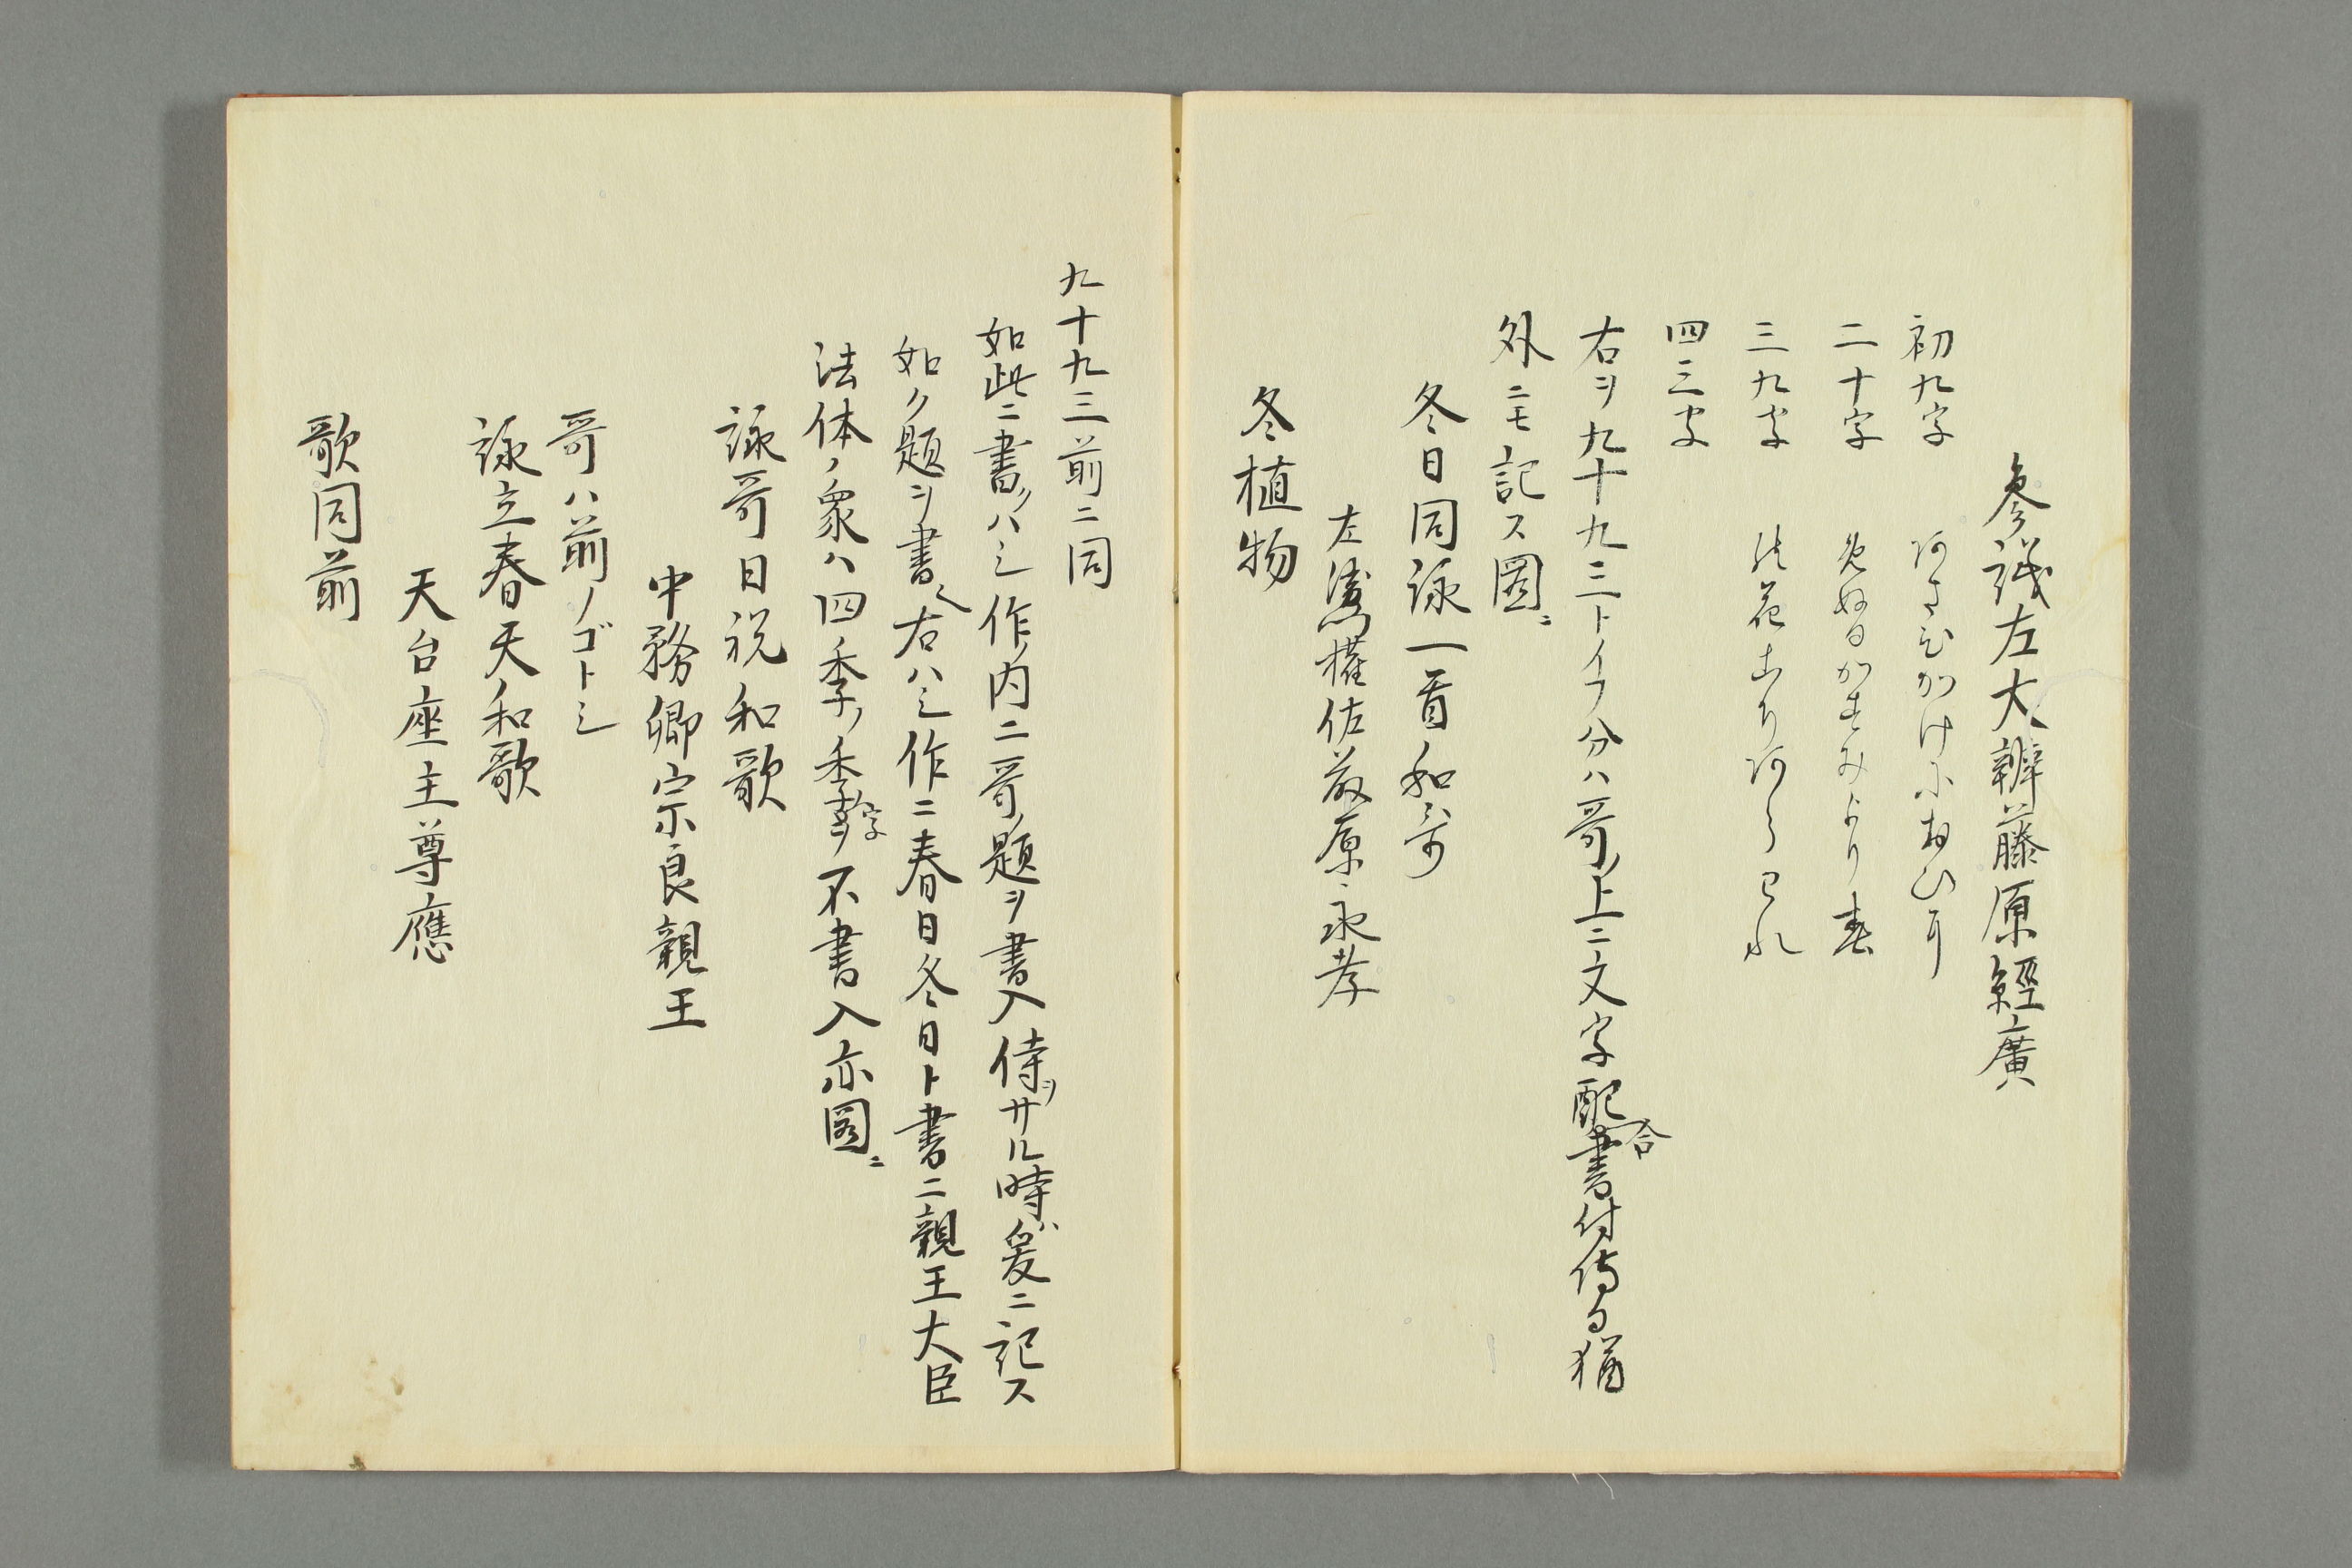 参議左大辨藤原經廣
初九字
二十字
三九字
四三字
右ヲ九十九三トイフ分ハ哥ノ上ニ文字配合書付侍る猶
外ニモ記ス圖ニ
冬日同詠一首和哥
左衞權佐藤原永孝
冬植物
九十九三前ニ同
如此ニ書ノハシ作ノ内ニ哥ノ題ヲ書入侍ラサル時ハ爰ニ記ス
如ク題ヲ書く右ハシ作ニ春日冬日ト書ニ親王大臣
法体ノ衆ハ四季ノ季字ヲ不書入亦圖ニ
詠哥日祝和歌
中務卿宗良親王
哥ハ前ノゴトシ
詠立春天和歌
天台座主尊應
歌同前